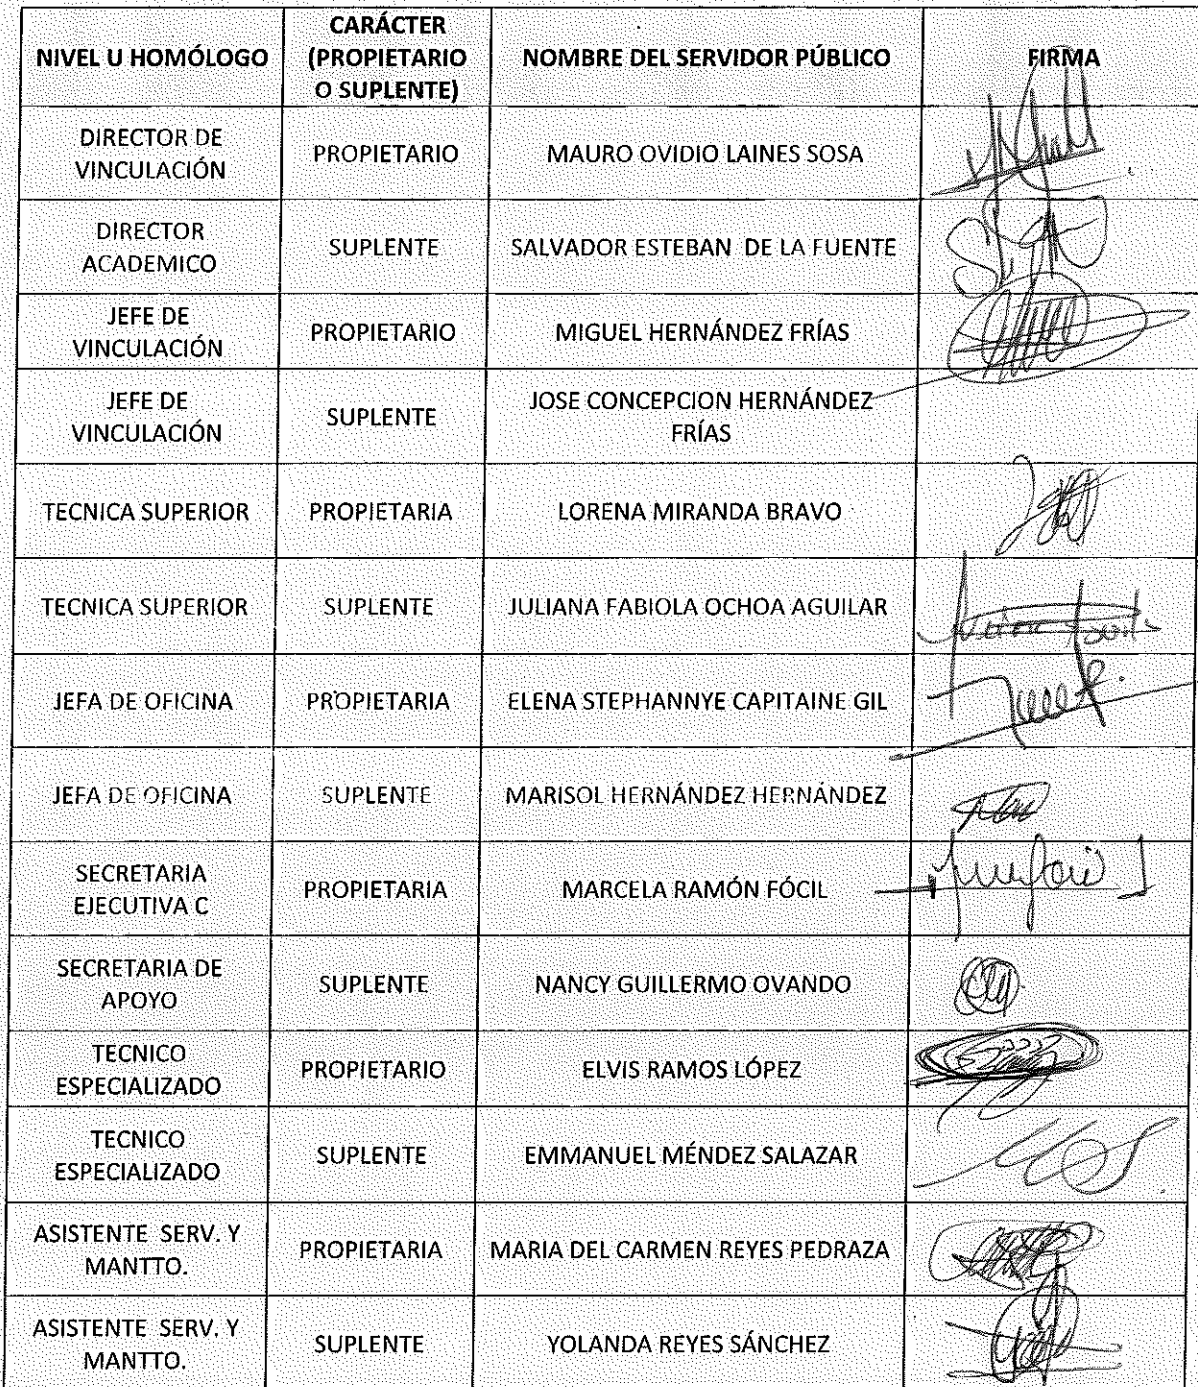 NIVEL U HOMÓLOGO
CARÁCTER
(PROPIETARIO
O SUPLENTE)
NOMBRE DEL SERVIDOR PÚBLICO
FIRMA
DIRECTOR DE
VINCULACIÓN
PROPIETARIO
MAURO OVIDIO LAINES SOSA
DIRECTOR
ACADEMICO
SUPLENTE
SALVADOR ESTEBAN DE LA FUENTE
JEFE DE
VINCULACIÓN
PROPIETARIO
MIGUEL HERNÁNDEZ FRÍAS
JEFE DE
VINCULACIÓN
SUPLENTE
JOSE CONCEPCION HERNÁNDEZ
FRÍAS
TECNICA SUPERIOR
PROPIETARIA
LORENA MIRANDA BRAVO
TECNICA SUPERIOR
SUPLENTE
JULIANA FABIOLA OCHOA AGUILAR
JEFA DE OFICINA
PROPIETARIA
ELENA STEPHANNYE CAPITAINE GIL
JEFA DE OFICINA
SUPLENTE
MARISOL HERNÁNDEZ HERNÁNDEZ
SECRETARIA
EJECUTIVA C
PROPIETARIA
MARCELA RAMÓN FÓCIL
SECRETARIA DE
APOYO
SUPLENTE
NANCY GUILLERMO OVANDO
TECNICO
ESPECIALIZADO
PROPIETARIO
ELVIS RAMOS LÓPEZ
TECNICO
ESPECIALIZADO
SUPLENTE
EMMANUEL MÉNDEZ SALAZAR
ASISTENTE SERV. Y
MANTTO.
PROPIETARIA
MARIA DEL CARMEN REYES PEDRAZA
ASISTENTE SERV. Y
MANTTO.
SUPLENTE
YOLANDA REYES SÁNCHEZ